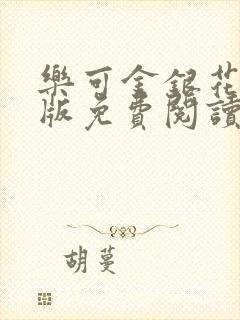 樂可金銀花
版免費閱讀
胡蔓